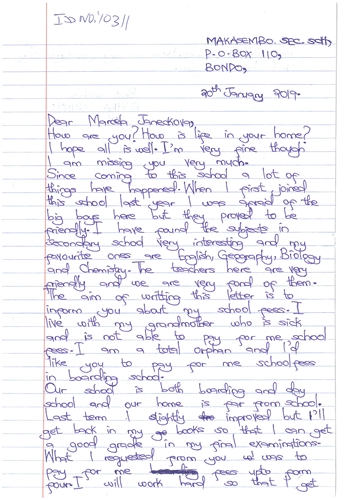 IDD NO.'/03//
MAKASEMBO. SEC. SCH,
P.O. BOX 110,
BONDO,
20th January 2019.
Dear Marcela Janeckova,
How are you? How is life in your home?
I hope all is well. I'm very fine though
I am missing you very much.
Since coming to this school a lot of
things have happened. When I first joined
this school last year I was afraid of the
big boys here but they proved to be
friendly. I have found the subjects in
secondary school very interesting and my
favourite ones are English, Geography, Biology
and Chemistry. The teachers here are very
friendly and we are very fond of them.
The aim of writting this letter is to
inform you about my school fees. I
live with my grandmother who is sick
and is not able to pay for me school
fees. I am a total orphan and I'd
like you to pay for me school fees
in boarding school.
Our school is both boarding and day
school and our home is far from school.
Last term I slightly improved but I'll
get back in my books so that I can get
a good grade in my final examinations.
What I requested from you was to
pay for me fees upto form
four. I will work hard so that I get